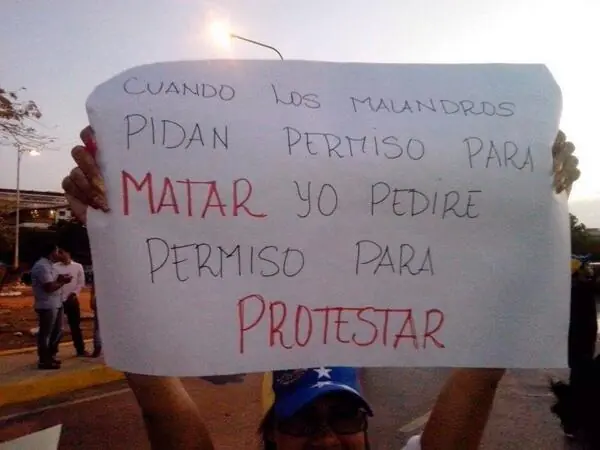 CUANDO LOS MALANDROS
PIDAN PERMISO PARA
MATAR YO PEDIRE
PERMISO PARA
PROTESTAR